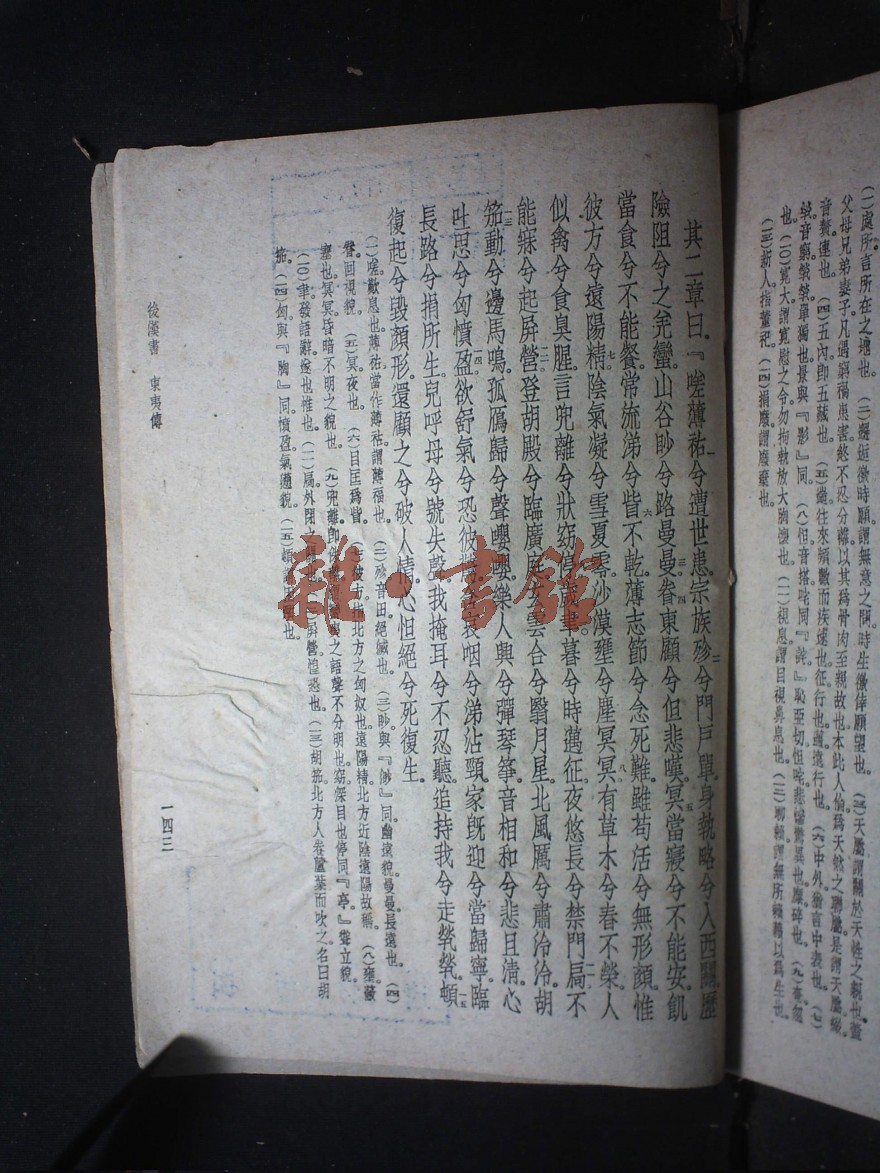 (一)處所言所在之地也。(二)邂逅徼時願謂無意之間時生徼倖願望也。(三)天屬謂關於天性之親也蓋
父母兄弟妻子凡遇窮禍患害終不忍分離以其爲骨肉至親故也本此人倫爲天然之聯屬是謂天屬綴
音贅連也。(四)五內即五臟也。
也。(一〇)寬大謂寬慰之令勿拘執放大胸懷也。(一一)視息謂目視鼻息也。
(一三)新人指董祀。(一四)捐廢謂廢棄也。
其二章曰『嗟薄祜兮遭世患宗族殄兮門戶單身執略兮入西關歷
險阻兮之羌蠻山谷眇兮路曼曼眷東顧兮但悲嘆冥當寢兮不能安飢
當食兮不能餐常流涕兮眥不乾薄志節兮念死難雖苟活兮無形顏惟
彼方兮遠陽精陰氣凝兮雪夏零沙漠壅兮塵冥冥有草木兮春不榮人
似禽兮食臭腥言兜離兮狀窈停歲聿暮兮時邁征夜悠長兮禁門扃不
能寐兮起屏營登胡殿兮臨廣庭玄雲合兮翳月星北風厲兮肅泠泠胡
笳動兮邊馬鳴孤鴈歸兮聲嚶嚶樂人興兮彈琴箏音相和兮悲且清心
吐思兮匈憤盈欲舒氣兮恐彼驚含哀咽兮涕沾頸家旣迎兮當歸寧臨
長路兮捐所生兒呼母兮號失聲我掩耳兮不忍聽追持我兮走煢煢頓
復起兮毀顏形還顧之兮破人情心怛絕兮死復生
(一)嗟歎息也薄祜當作薄祜謂薄福也。(二)殄音田絕滅也。(三)眇與『緲』同幽遠貌曼曼長遠也。(四)
眷回視貌。(五)冥夜也。(六)目匡爲眥。(七)彼方指北方之匈奴也遠陽精北方近陰遠陽故稱。(八)壅蔽
塞也冥冥昏暗不明之貌也。(九)兜離即 之語聲不分明也窈深目也停同『亭』聳立貌。
(一〇)聿發語辭 也惟也。(一一)扃外閉之 也。(一二)屏營惶恐也。(一三)胡笳北方人卷蘆葉而吹之名曰胡
笳。(一四)匈與『胸』同憤盈氣 貌。(一五)頓 也。
後漢書 東夷傳
一四三
雜·書館